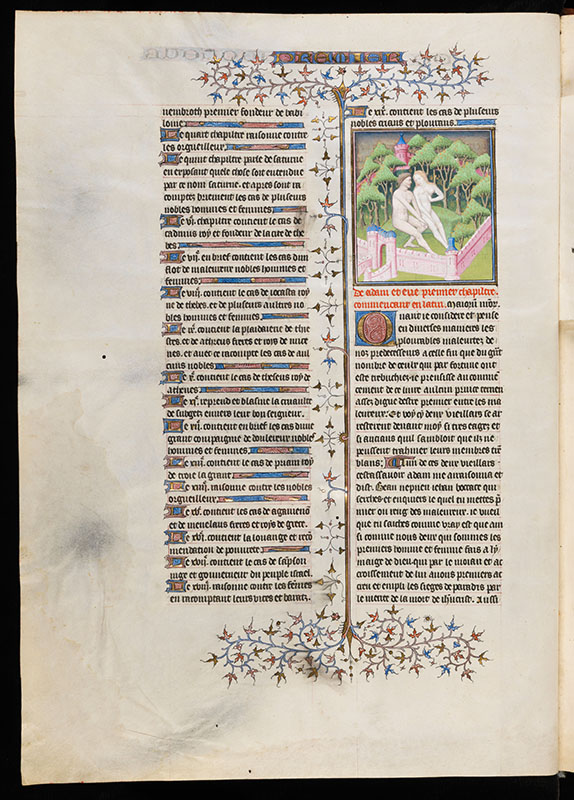 PREMIER
nembroth premier fondeur de babi
loine
Le quart chapitre raisonne contre
les orgueilleux
Le quint chapitre parle de saturne
en exposant quele chose soit entendue
par ce nom saturne. et apres sont ra
comptez briefment les cas de plusieurs
nobles hommes et femmes
Le vi. chapitre contient le cas de
cadmus roy et fondeur de la cite de the
bes
Le vii. en brief contient les cas dun
flot de maleureux nobles hommes et
femmes
Le viii. contient le cas de iocasta roy
ne de thebes. et de plusieurs aultres no
bles hommes et femmes
Le ix. contient la plaidoierie de thie
stes. et de atheus freres et roys de mice
nes. et avec ce racompte les cas de aul
cuns nobles
Le x. contient le cas de theseus roy de
athenes
Le xi. reprend et blasme la cruaulte
de subgez envers leur bon seigneur.
Le xii. contient en brief les cas dune
grant compaignie de douloreux nobles
hommes et femmes
Le xiii. contient le cas de priam roy
de troie la grant
Le xiiii. raisonne contre les nobles
orgueilleux
Le xv. contient les cas de agamenon
et de menelaus freres et roys de grece.
Le xvi. contient la louange et recom
mendation de pouurete
Le xvii. contient le cas de sanson
iuge et gouuerneur du peuple israel.
Le xviii. raisonne contre les femmes
en racomptant leurs vices et baratz.
Le xix. contient les cas de plusieurs
nobles crians et plourans
De adam et eue premier chapitre.
commencant en latin. maiorum nostrorum
Quant ie considere et pense
en diuerses manieres les
plourables maleuretez de
noz predecesseurs a celle fin que du grant
nombre de ceulx qui par fortune ont
este trebuchiez ie prenisse au commen
cement de ce liure aulcun prince terrien
assez digne destre premier entre les ma
leureux. Et voy cy deux vieillars se ar
resterent deuant moy si tres eagez et
si anciens quil sambloit que ilz ne
peussent trahiner leurs membres trem
blans. Lun de ces deux vieillars
cestassauoir adam me arraisonna et
dist. Beau nepueu iehan bocace qui
serches et enquiers le quel tu mettes pre
mier ou reng des maleureux. ie vueil
que tu saiches comme vray est que ain
si comme nous deux qui sommes les
premiers homme et femme fais a ly
maige de dieu. qui par le moien et ac
croissement de lui auons premiers ac
creu et empli les sieges de paradis par
le merite de la mort de ihesucrist. Aussi